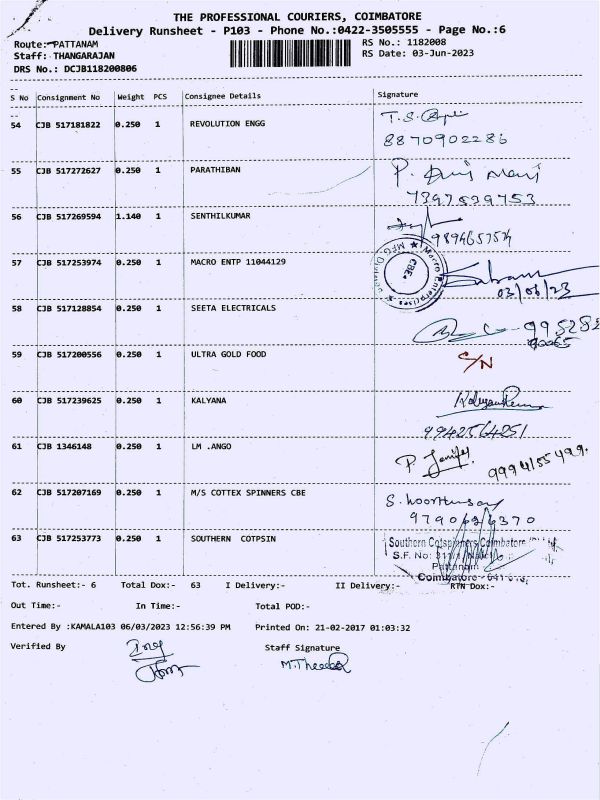 THE PROFESSIONAL COURIERS, COIMBATORE
Delivery Runsheet - P103 - Phone No.:0422-3505555 - Page No.:6
Route:-PATTANAM RS No.: 1182008
Staff: THANGARAJAN RS Date: 03-Jun-2023
DRS No.: DCJB118200806
S No Consignment No Weight PCS Consignee Details Signature
54 CJB 517181822 0.250 1 REVOLUTION ENGG T.S.
8870902286
55 CJB 517272627 0.250 1 PARATHIBAN P.
7397539753
56 CJB 517269594 1.140 1 SENTHILKUMAR
57 CJB 517253974 0.250 1 MACRO ENTP 11044129 Macro Enterprises ★ MFG Division ★ CBE
03/06/23
58 CJB 517128854 0.250 1 SEETA ELECTRICALS
995282
59 CJB 517200556 0.250 1 ULTRA GOLD FOOD C/N
60 CJB 517239625 0.250 1 KALYANA
9942564251
61 CJB 1346148 0.250 1 LM .ANGO P. Jenifer
62 CJB 517207169 0.250 1 M/S COTTEX SPINNERS CBE
63 CJB 517253773 0.250 1 SOUTHERN COTPSIN Southern Cotspinners Coimbatore
S.F. No:
Pattanam
Coimbatore - 641
Tot. Runsheet:- 6 Total Dox:- 63 I Delivery:- II Delivery:- RTN Dox:-
Out Time:- In Time:- Total POD:-
Entered By :KAMALA103 06/03/2023 12:56:39 PM Printed On: 21-02-2017 01:03:32
Verified By Staff Signature